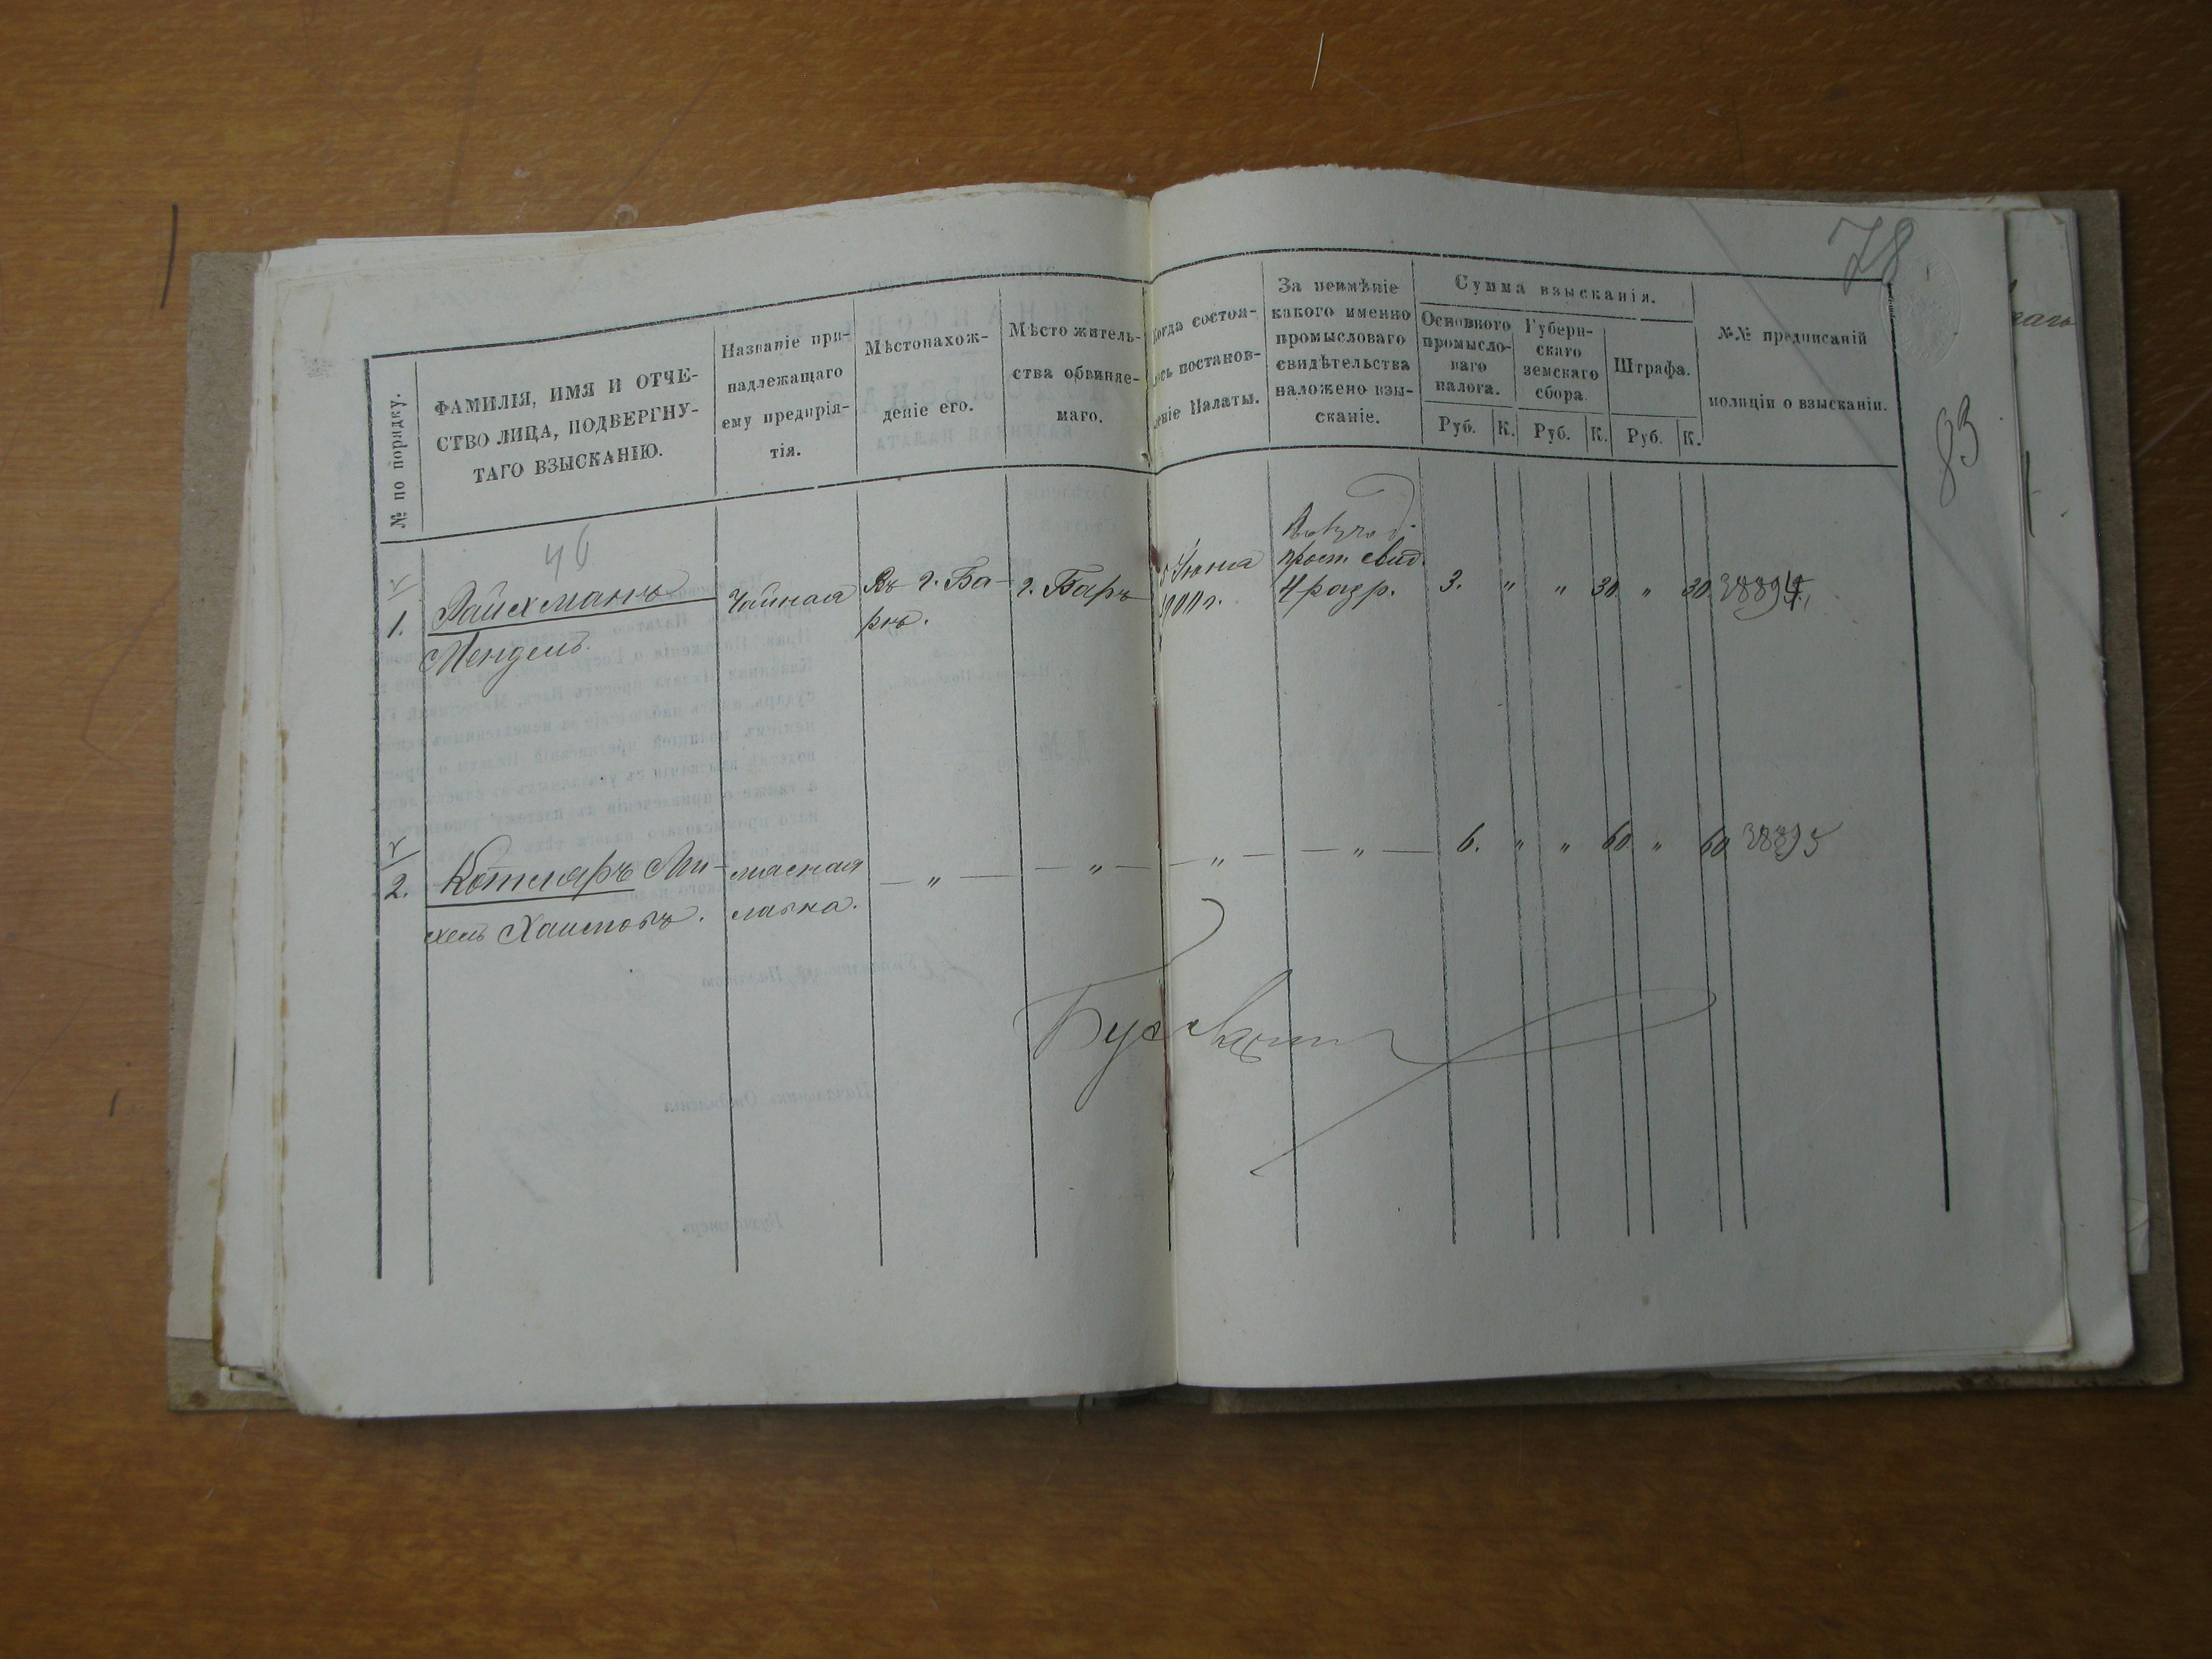 78
83
№ по порядку.
ФАМИЛІЯ, ИМЯ И ОТЧЕ-
СТВО ЛИЦА, ПОДВЕРГНУ-
ТАГО ВЗЫСКАНІЮ.
Названіе при-
надлежащаго
ему предпрія-
тія.
Мѣстонахож-
деніе его.
Мѣсто житель-
ства обвиняе-
маго.
Когда состоя-
лось постанов-
леніе Палаты.
За неимѣніе
какого именно
промысловаго
свидѣтельства
наложено взы-
сканіе.
Сумма взысканія.
Основного
промысло-
ваго
налога.
Губерн-
скаго
земскаго
сбора
Штрафа.
Руб. К. Руб. К. Руб. К.
№№ предписаній
полиціи о взысканіи.
46
1.
Райхманъ
Мендель.
Чайная
Въ г. Ба-
рѣ.
г. Баръ
Іюня
1900 г.
пром. свид.
4 разр.
3. " " 30 " 30 38894
2.
Котляръ Ми-
хель Хаимовъ.
мясная
лавка.
— " — — " — — " — — " — 6. " " 60 " 60 38895